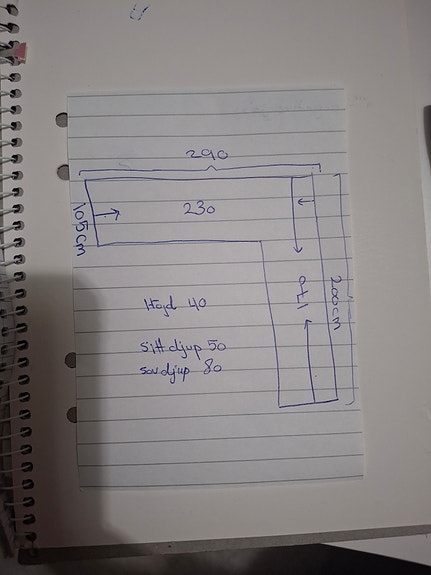 290
230
105cm
200cm
170
Höjd 40
Sitt djup 50
sov djup 80